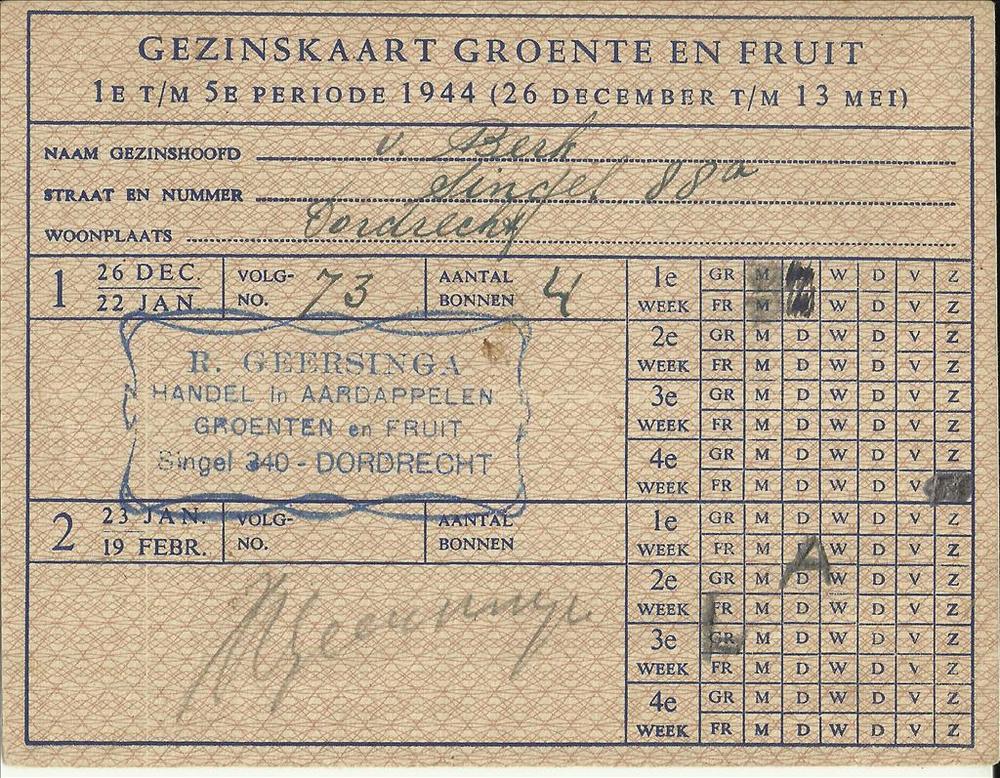 GEZINSKAART GROENTE EN FRUIT
1E T/M 5E PERIODE 1944 (26 DECEMBER T/M 13 MEI)
NAAM GEZINSHOOFD v. Berk
STRAAT EN NUMMER Singel 88a
WOONPLAATS Dordrecht
1 26 DEC. 22 JAN. VOLG-NO. 73 AANTAL BONNEN 4
1e WEEK GR M W D V Z
FR M W D V Z
2e WEEK GR M D W D V Z
FR M D W D V Z
3e WEEK GR M D W D V Z
FR M D W D V Z
4e WEEK GR M D W D V Z
FR M D W D V
R. GEERSINGA
HANDEL in AARDAPPELEN
GROENTEN en FRUIT
Singel 340 - DORDRECHT
2 23 JAN. 19 FEBR. VOLG-NO. AANTAL BONNEN
1e WEEK GR M D W D V Z
FR M D W D V Z
A
2e WEEK GR M D W D V Z
FR M D W D V Z
L
3e WEEK GR M D W D V Z
FR M D W D V Z
4e WEEK GR M D W D V Z
FR M D W D V Z